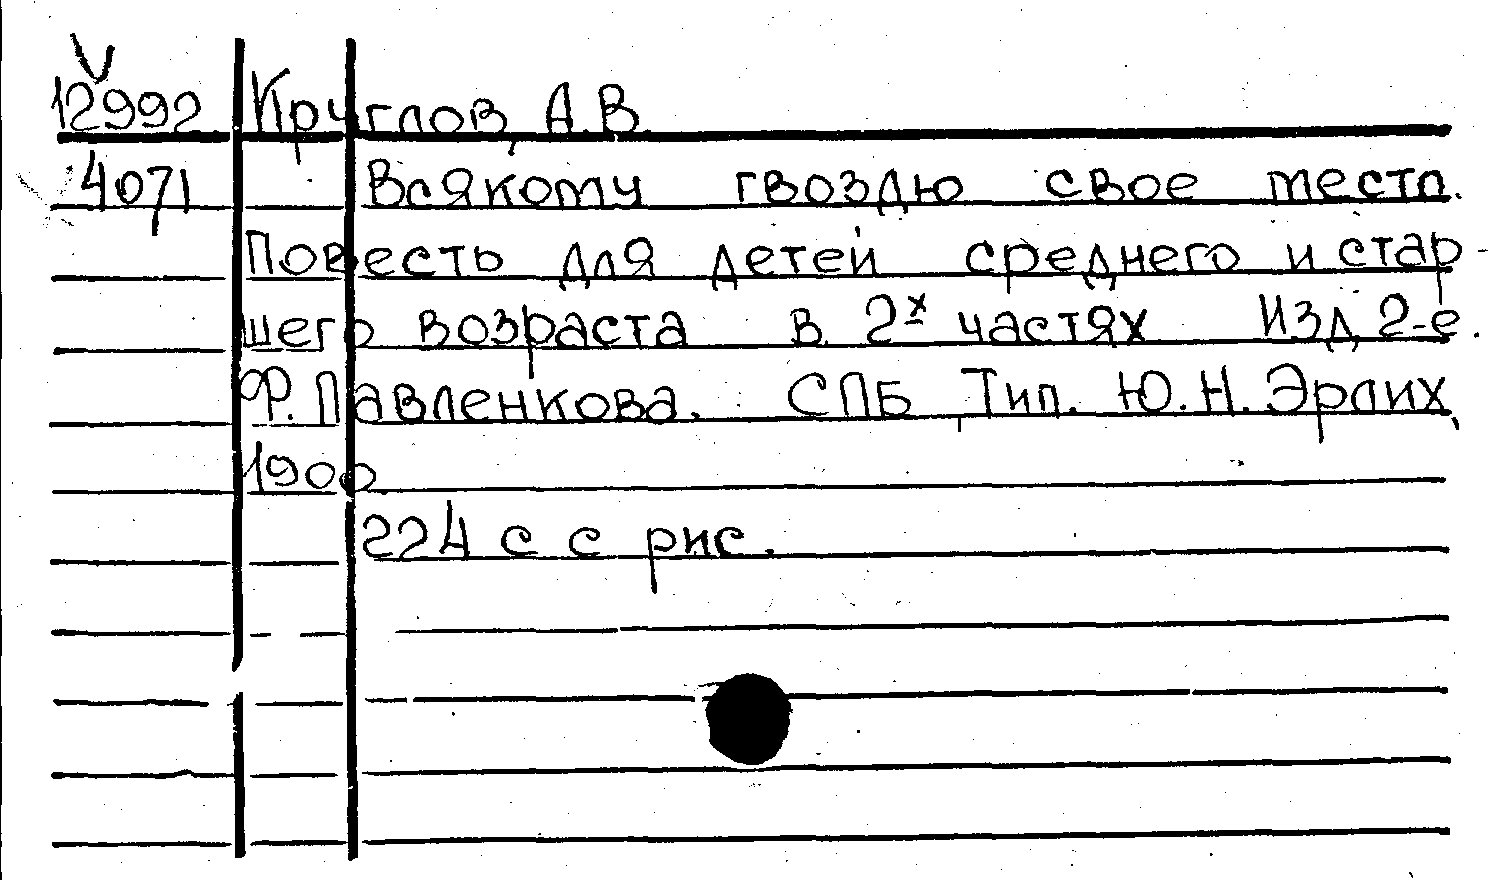 V
12992 Круглов, А.В.
4071 Всякому гвоздю свое место.
Повесть для детей среднего и стар-
шего возраста в 2х частях Изд 2-е.
Ф. Павленкова. СПБ, Тип. Ю.Н. Эрлих,
1900
224 с с рис.